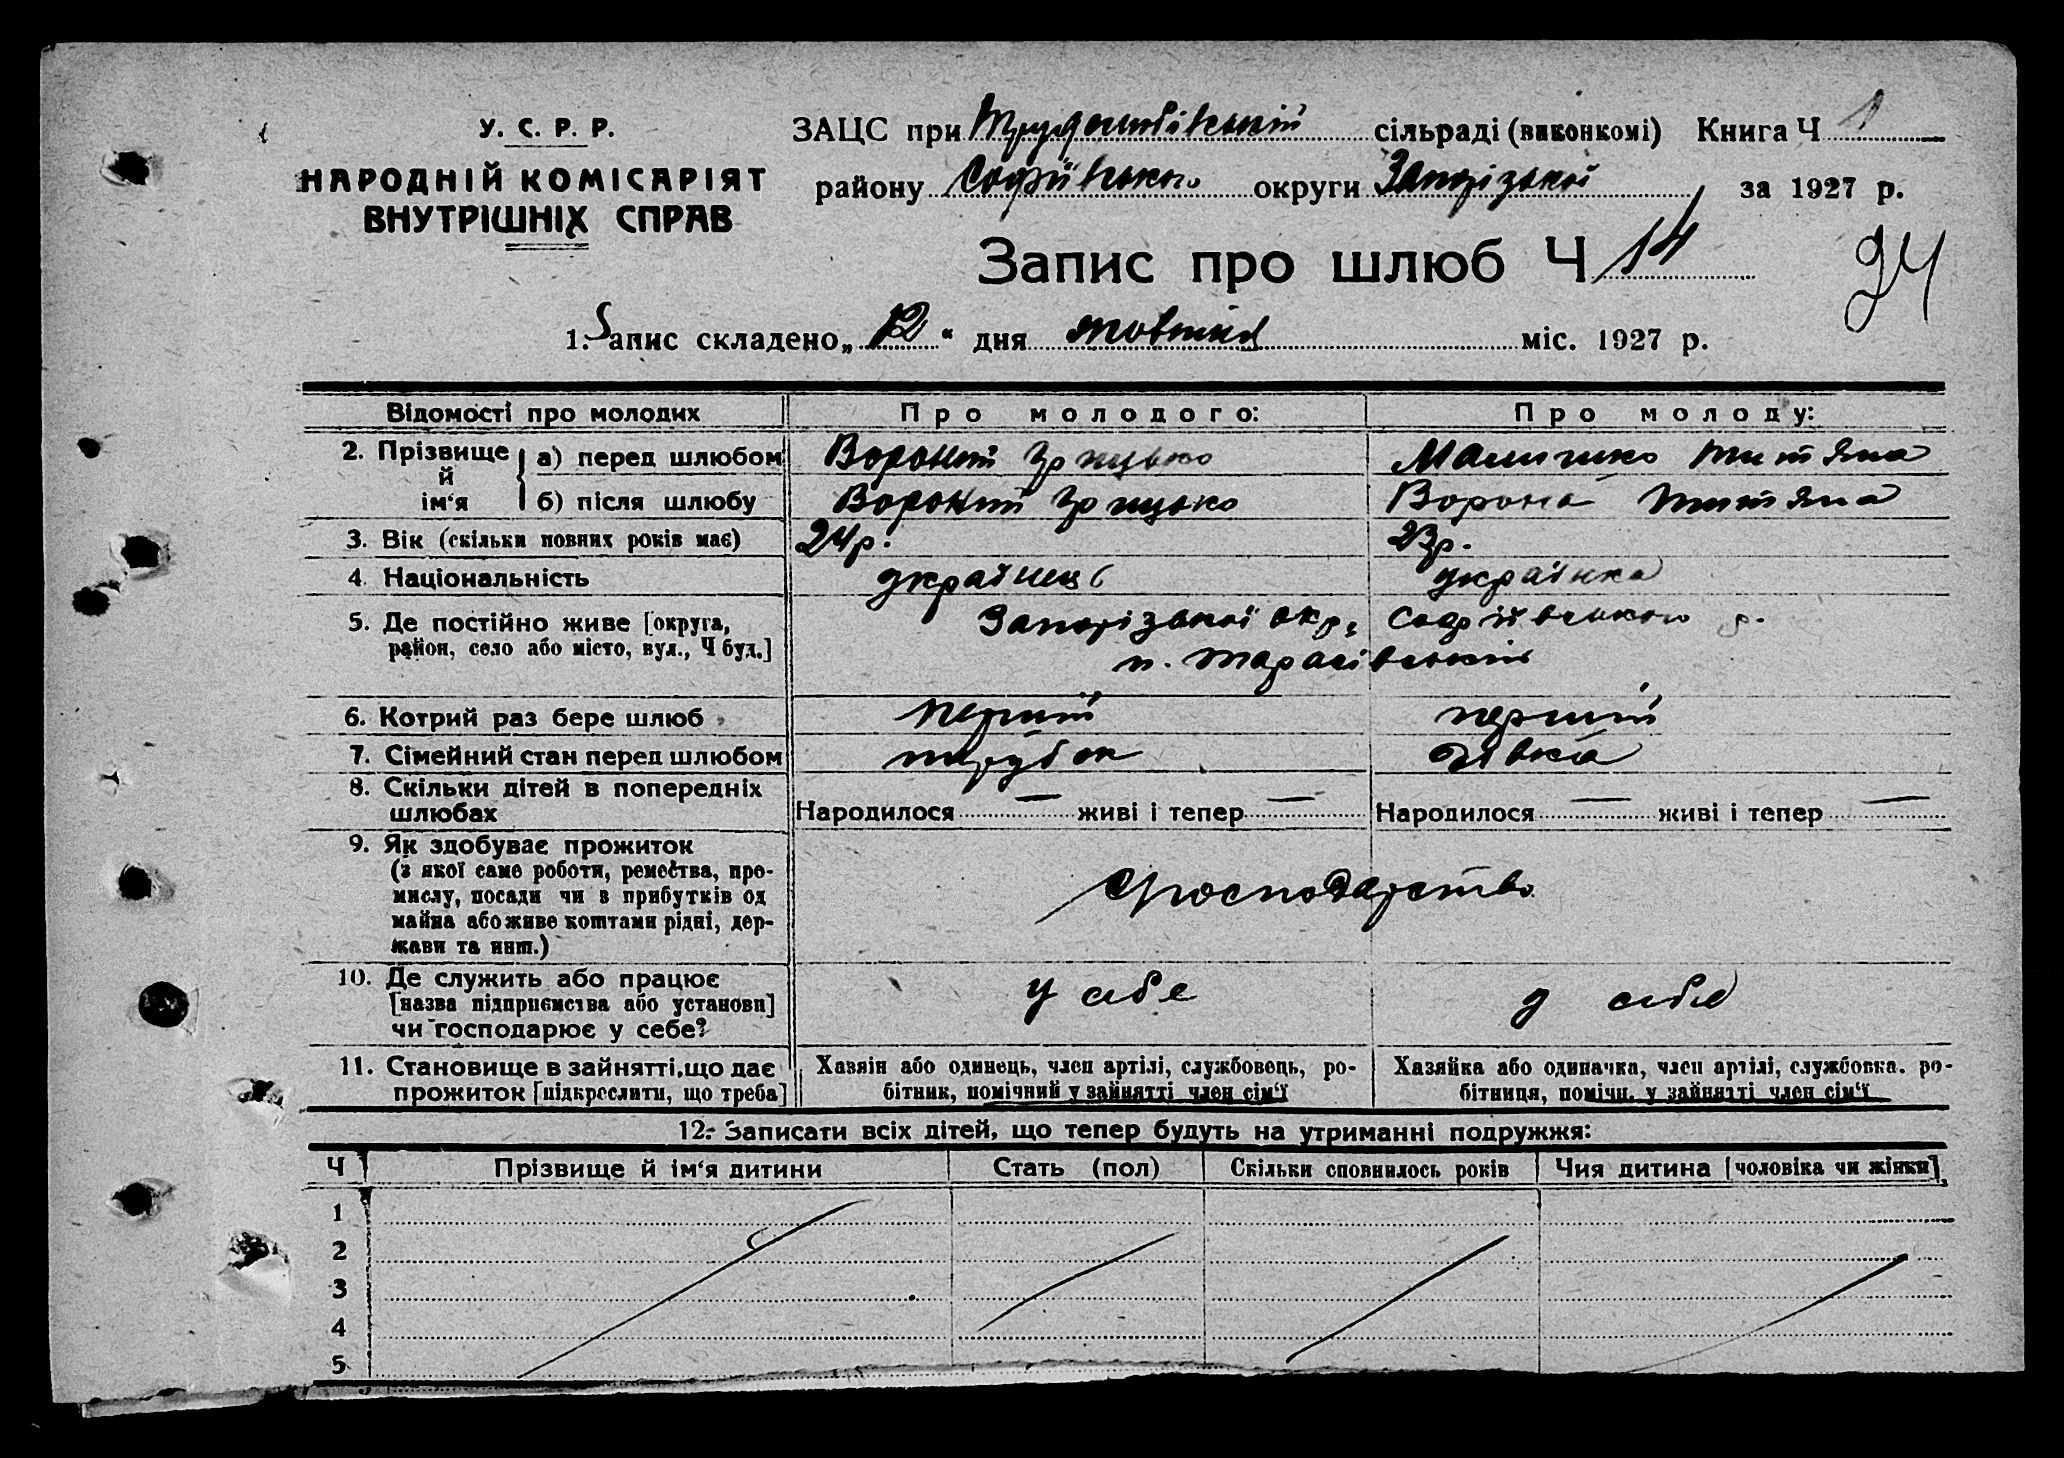 У. С. Р. Р.
НАРОДНІЙ КОМІСАРІЯТ
ВНУТРІШНІХ СПРАВ
ЗАЦС при сільраді (виконкомі) Книга Ч 1
району Софіївського округи Запорізької за 1927 р.
Запис про шлюб Ч 14
94
1. Запис складено „12“ дня жовтня міс. 1927 р.
Відомості про молодих Про молодого: Про молоду:
2. Прізвище й ім‘я а) перед шлюбом Вороний Грицько Титяна
б) після шлюбу Вороний Грицько Ворона Титяна
3. Вік (скільки повних років має) 24р. 23р.
4. Національність українець українка
5. Де постійно живе [округа, район, село або місто, вул., Ч буд.] Запорізької окр. Софіївського р.
п. Тарасівський
6. Котрий раз бере шлюб перший перший
7. Сімейний стан перед шлюбом парубок дівка
8. Скільки дітей в попередніх шлюбах Народилося — живі і тепер — Народилося — живі і тепер —
9. Як здобуває прожиток
(з якої саме роботи, ремества, про-
мислу, посади чи в прибутків од
майна або живе коштами рідні, дер-
жави та инш.)
господарство
10. Де служить або працює
[назва підприємства або установи]
чи господарює у себе?
у себе у себе
11. Становище в зайнятті, що дає
прожиток [підкреслити, що треба]
Хазяїн або одинець, член артілі, службовець, ро-
бітник, помічний у зайнятті член сім‘ї
Хазяйка або одиначка, член артілі, службовка. ро-
бітниця, помічн. у зайнятті член сім‘ї
12. Записати всіх дітей, що тепер будуть на утриманні подружжя:
Ч Прізвище й ім‘я дитини Стать (пол) Скільки сповнилось років Чия дитина [чоловіка чи жінки]
1
2
3
4
5